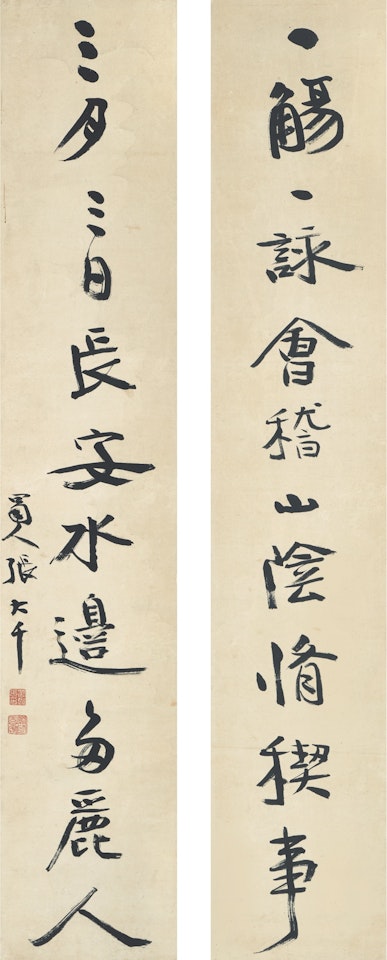 一觴一詠會稽山陰脩稧事
三月三日長安水邊多麗人
蜀人張大千